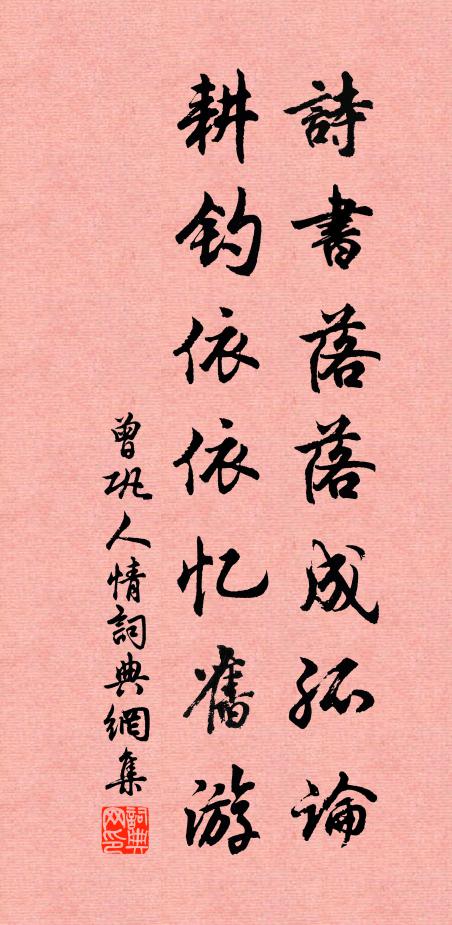 詩書落落成孤論
耕钓依依忆舊游
曾巩人情詞典網集
詞典网印